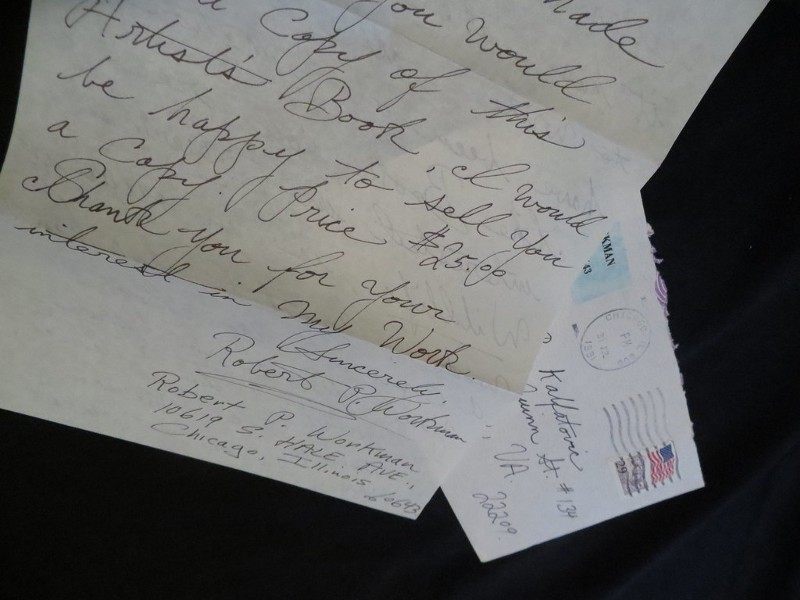 Made
you would
a Copy of this
Artist's Book, I would
be happy to sell you
a copy. Price $25.00
Thank you for your
interest in My Work.
Sincerely,
Robert P. Workman
Robert P. Workman
10619 S. HALE AVE.,
Chicago, Illinois 60643
KMAN
43
PM
1991
29
Kalfatovic
Quinn St. #134
, VA.
22209.